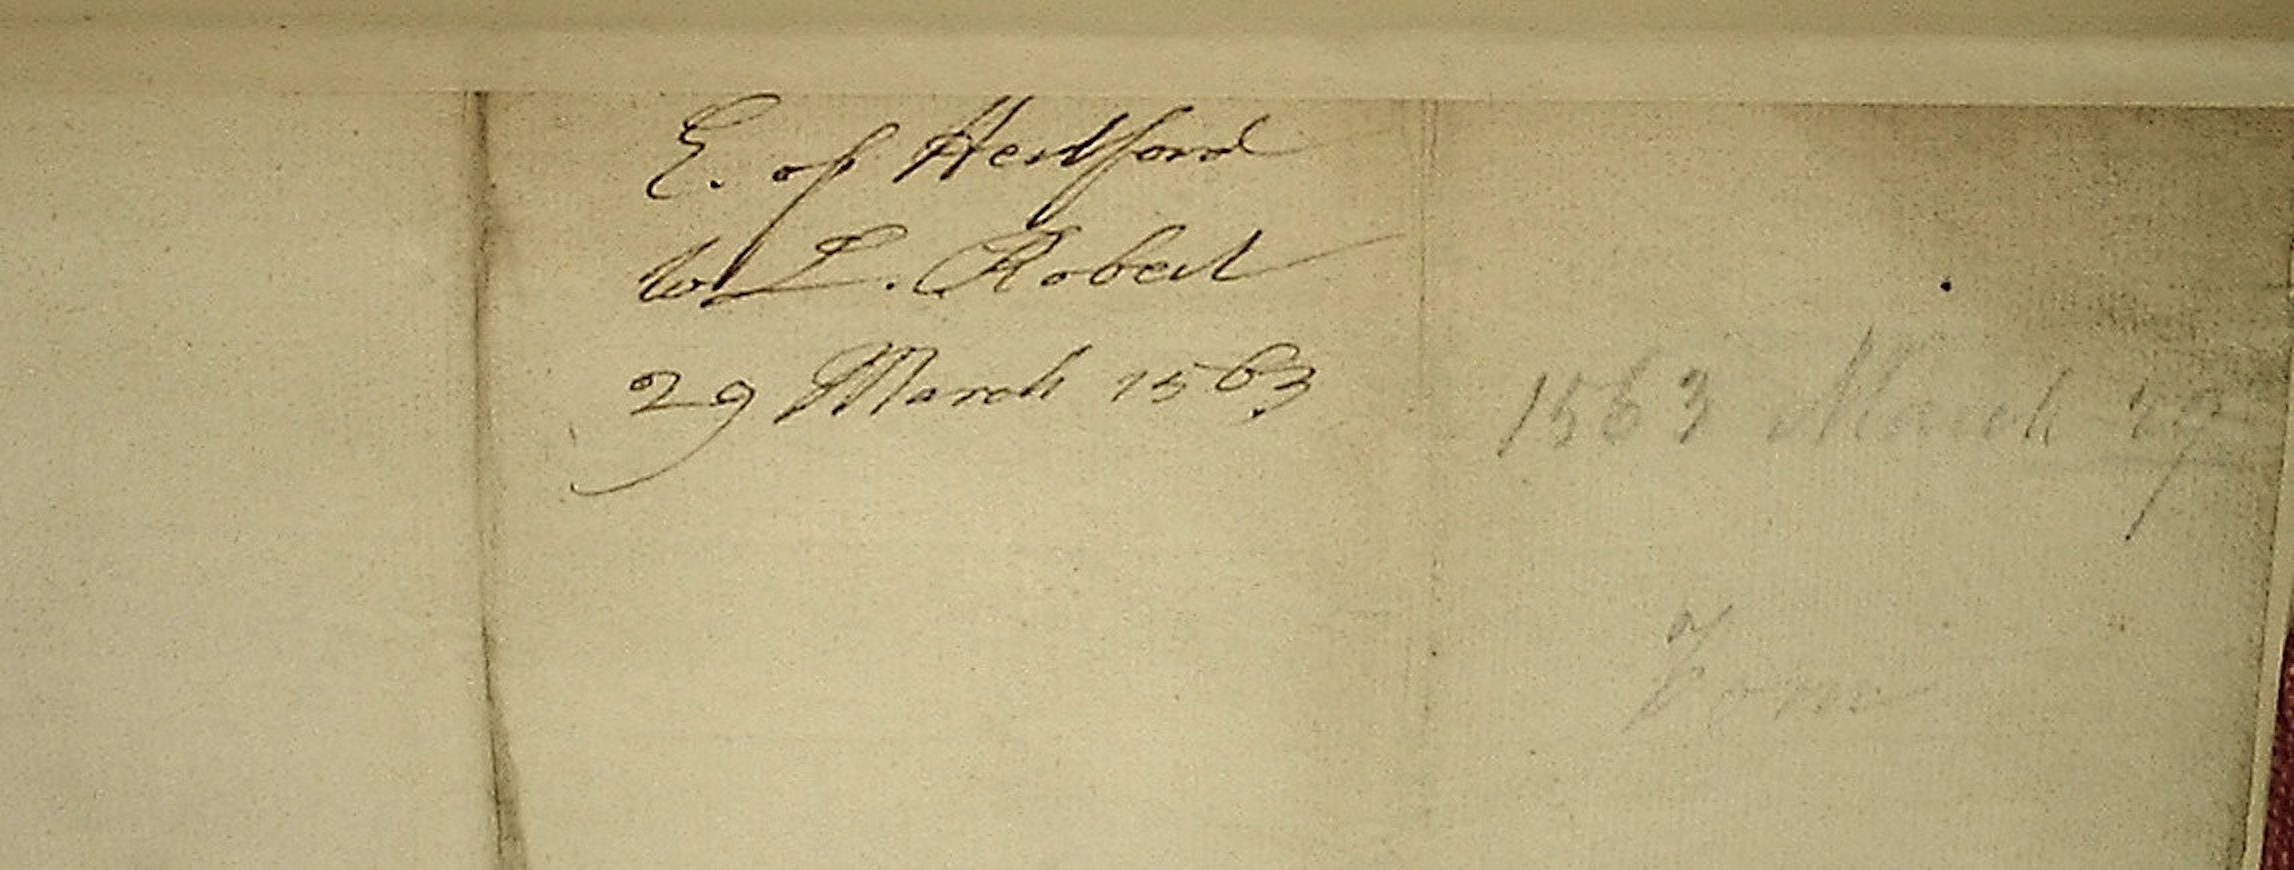 E. of Hertford
to L. Robert
29 March 1563
1563 March 29